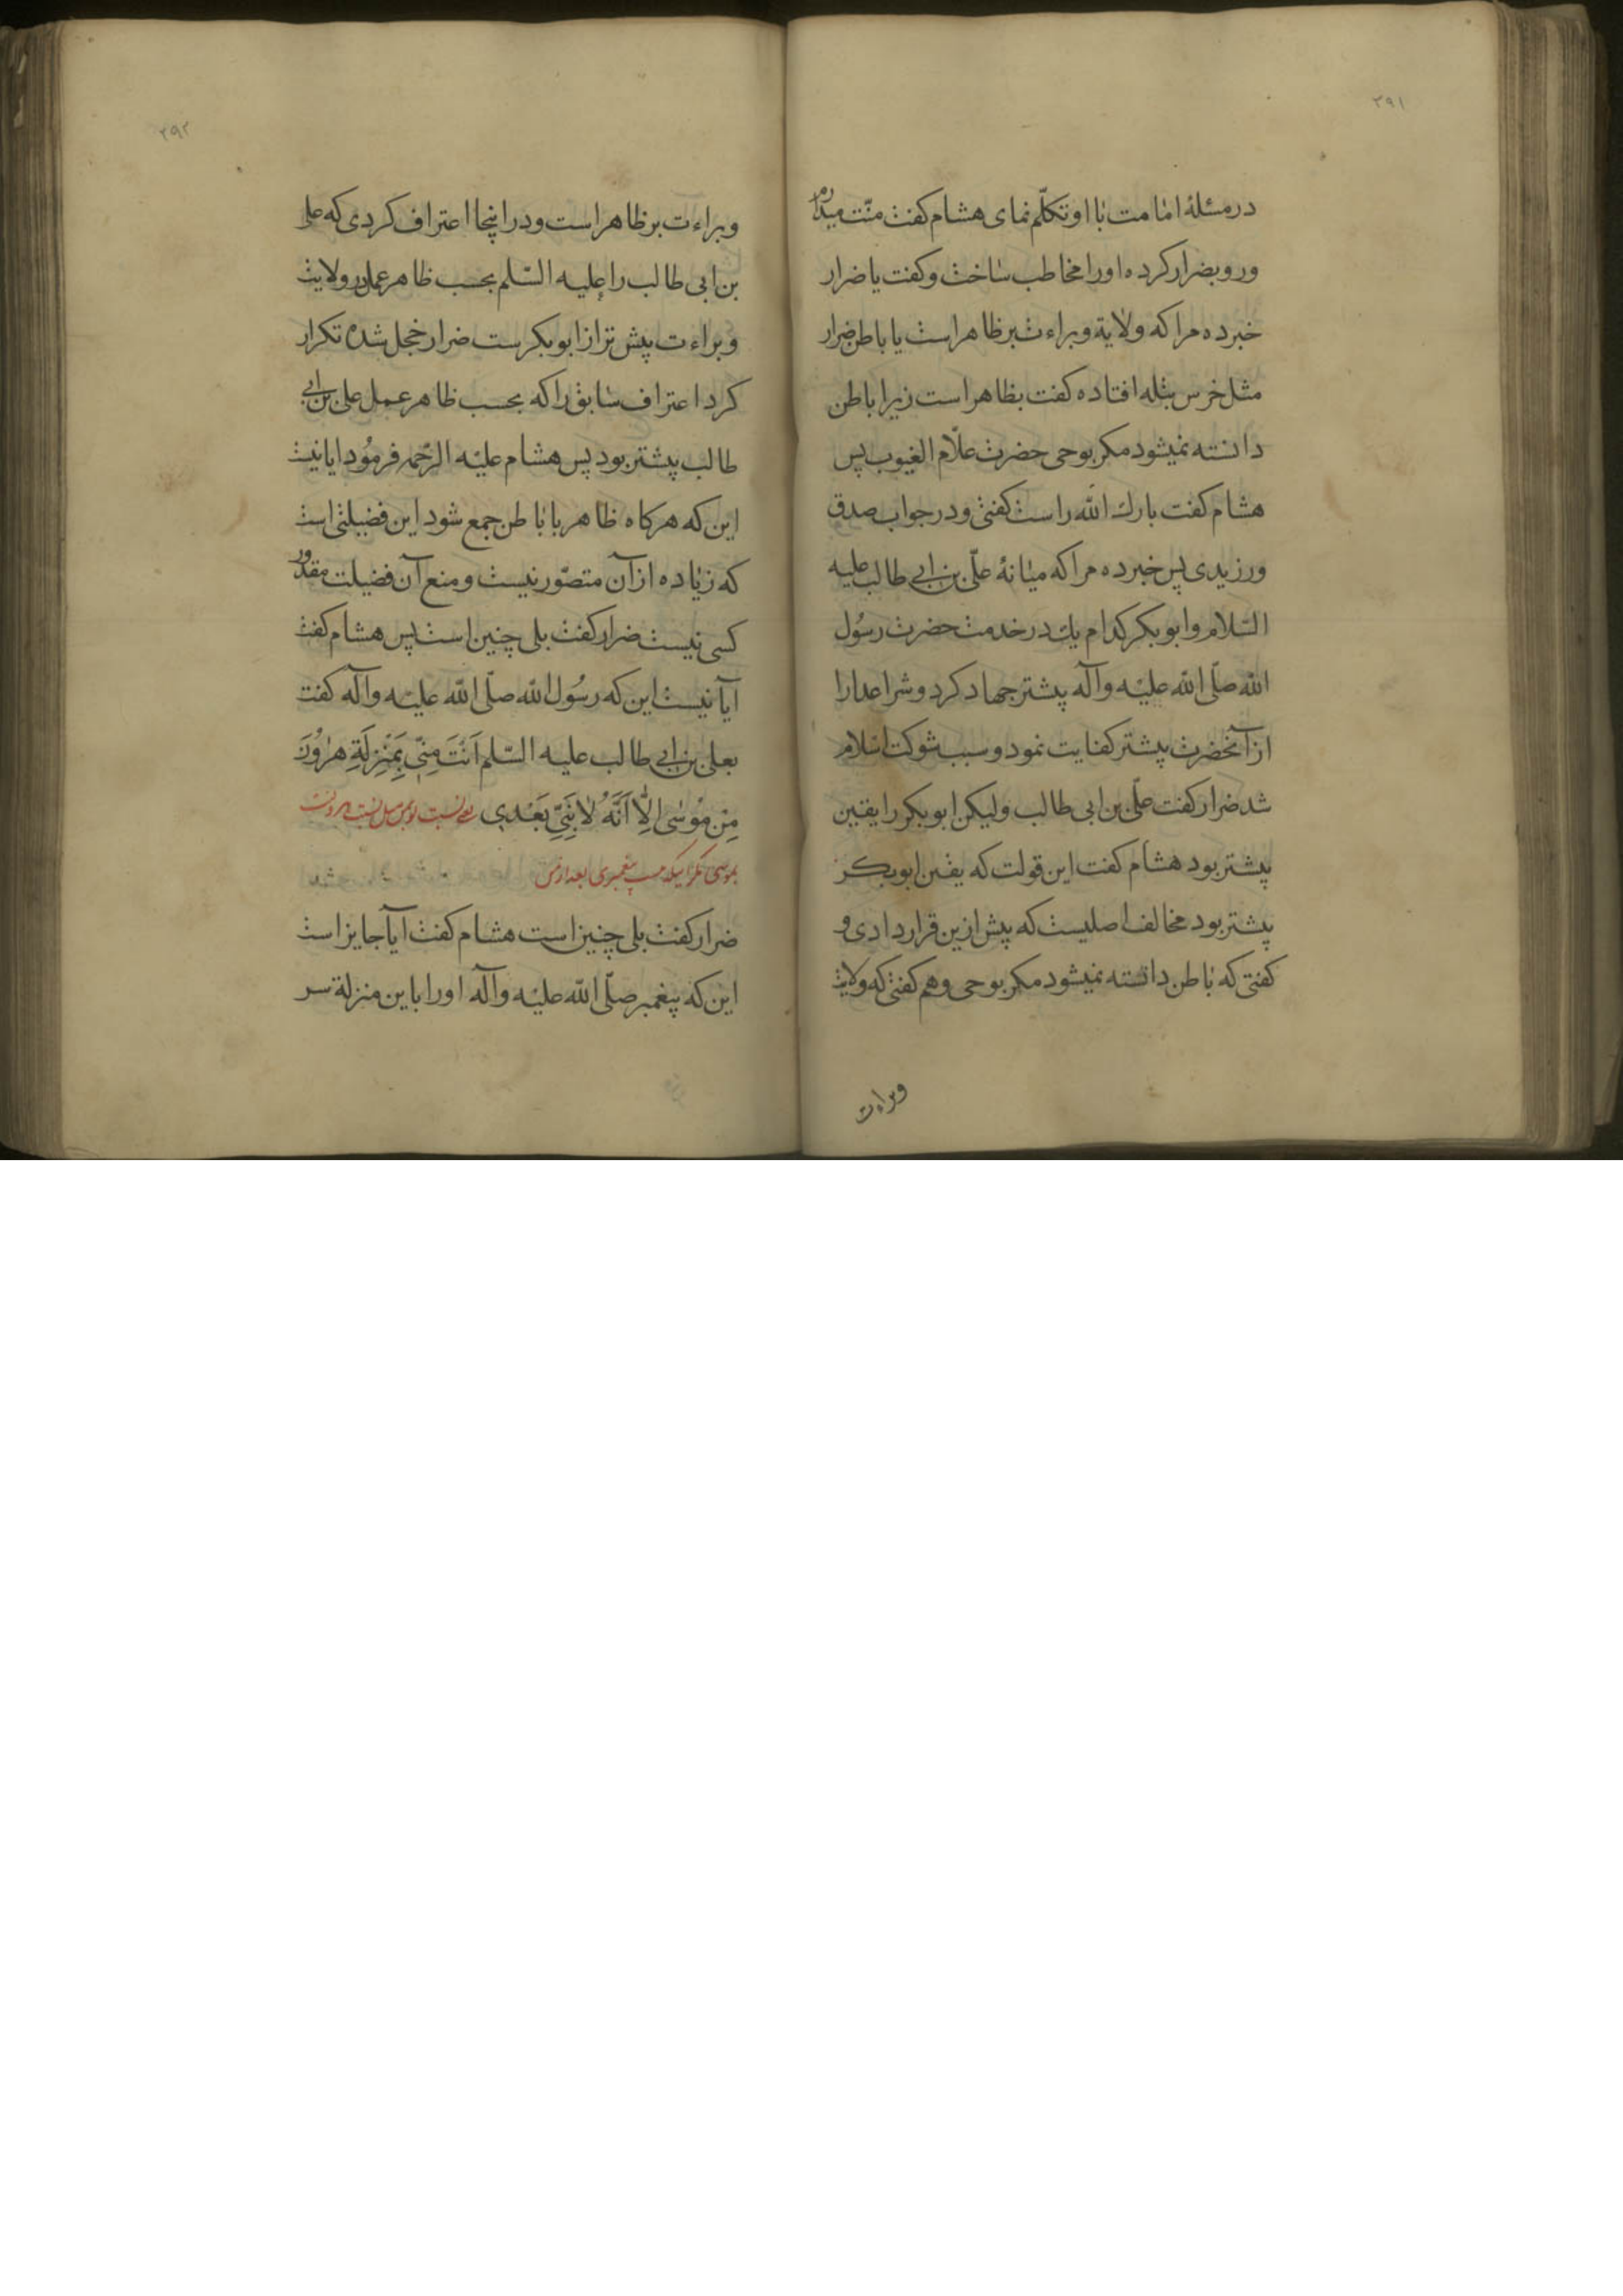 ۳۹۱
در مسئلهٔ امامت با او تکلّم نمای هشام کفت منّت میدارم
و رو بضرار کرده او را مخاطب ساخت و کفت یا ضرار
خبر ده مرا که ولایة و براءت بر ظاهر است یا باطن ضرار
مثل خرس بتله افتاده کفت بظاهر است زیرا باطن
دانسته نمیشود مکر بوحی حضرت علّام الغیوب پس
هشام کفت بارك الله راست کفتی و در جواب صدق
ورزیدی پس خبر ده مرا که میانهٔ علّی بن ابی طالب علیه
السّلام و ابو بکر کدام یك در خدمت حضرت رسُول
الله صلّی الله علیْه وآله پیشتر جهاد کرد و شر اعدا را
از آنحضرت پیشتر کفایت نمود و سبب شوکت اسلام
شد ضرار کفت علّی بن ابی طالب ولیکن ابو بکر را یقین
پیشتر بود هشام کفت این قولت که یقین ابو بکر
پیشتر بود مخالف اصلیست که پیش ازین قرار دادی و
کفتی که باطن دانسته نمیشود مکر بوحی و هم کفتی که ولایت
وبراءت
۳۹۲
و براءت بر ظاهر است و در اینجا اعتراف کردی که علی
بن ابی طالب را علیه السّلم بحسب ظاهر عمل در ولایت
و براءت پیش تر از ابو بکرست ضرار خجل شده تکرار
کرد اعتراف سابق را که بحسب ظاهر عمل علی بن ابی
طالب پیشتر بود پس هشام علیْه الرّحمه فرمُود ایا نیست
این که هرکاه ظاهر با باطن جمع شود این فضیلتی است
که زیاده از آن متصّور نیست و منع آن فضیلت مقدور
کسی نیست ضرار کفت بلی چنین است پس هشام کفت
ایآ نیست این که رسُول الله صلّی الله علیه وآله کفت
بعلی بن ابی طالب علیه السّلم اَنْتَ مِنّی بِمَنْزِلَةِ هٰرُوُنَ
مِنْ مُوْسٰی اِلّٰا اَنَّهُ لٰا نَبِیَّ بَعْدی یعنی نسبت تو بمن مثل نسبت هرونست
بموسی مکر اینکه نیست پیغمبری بعد از من
ضرار کفت بلی چنین است هشام کفت ایآ جایز است
این که پیغمبر صلّی الله علیْه وآله او را باین منزلة سر